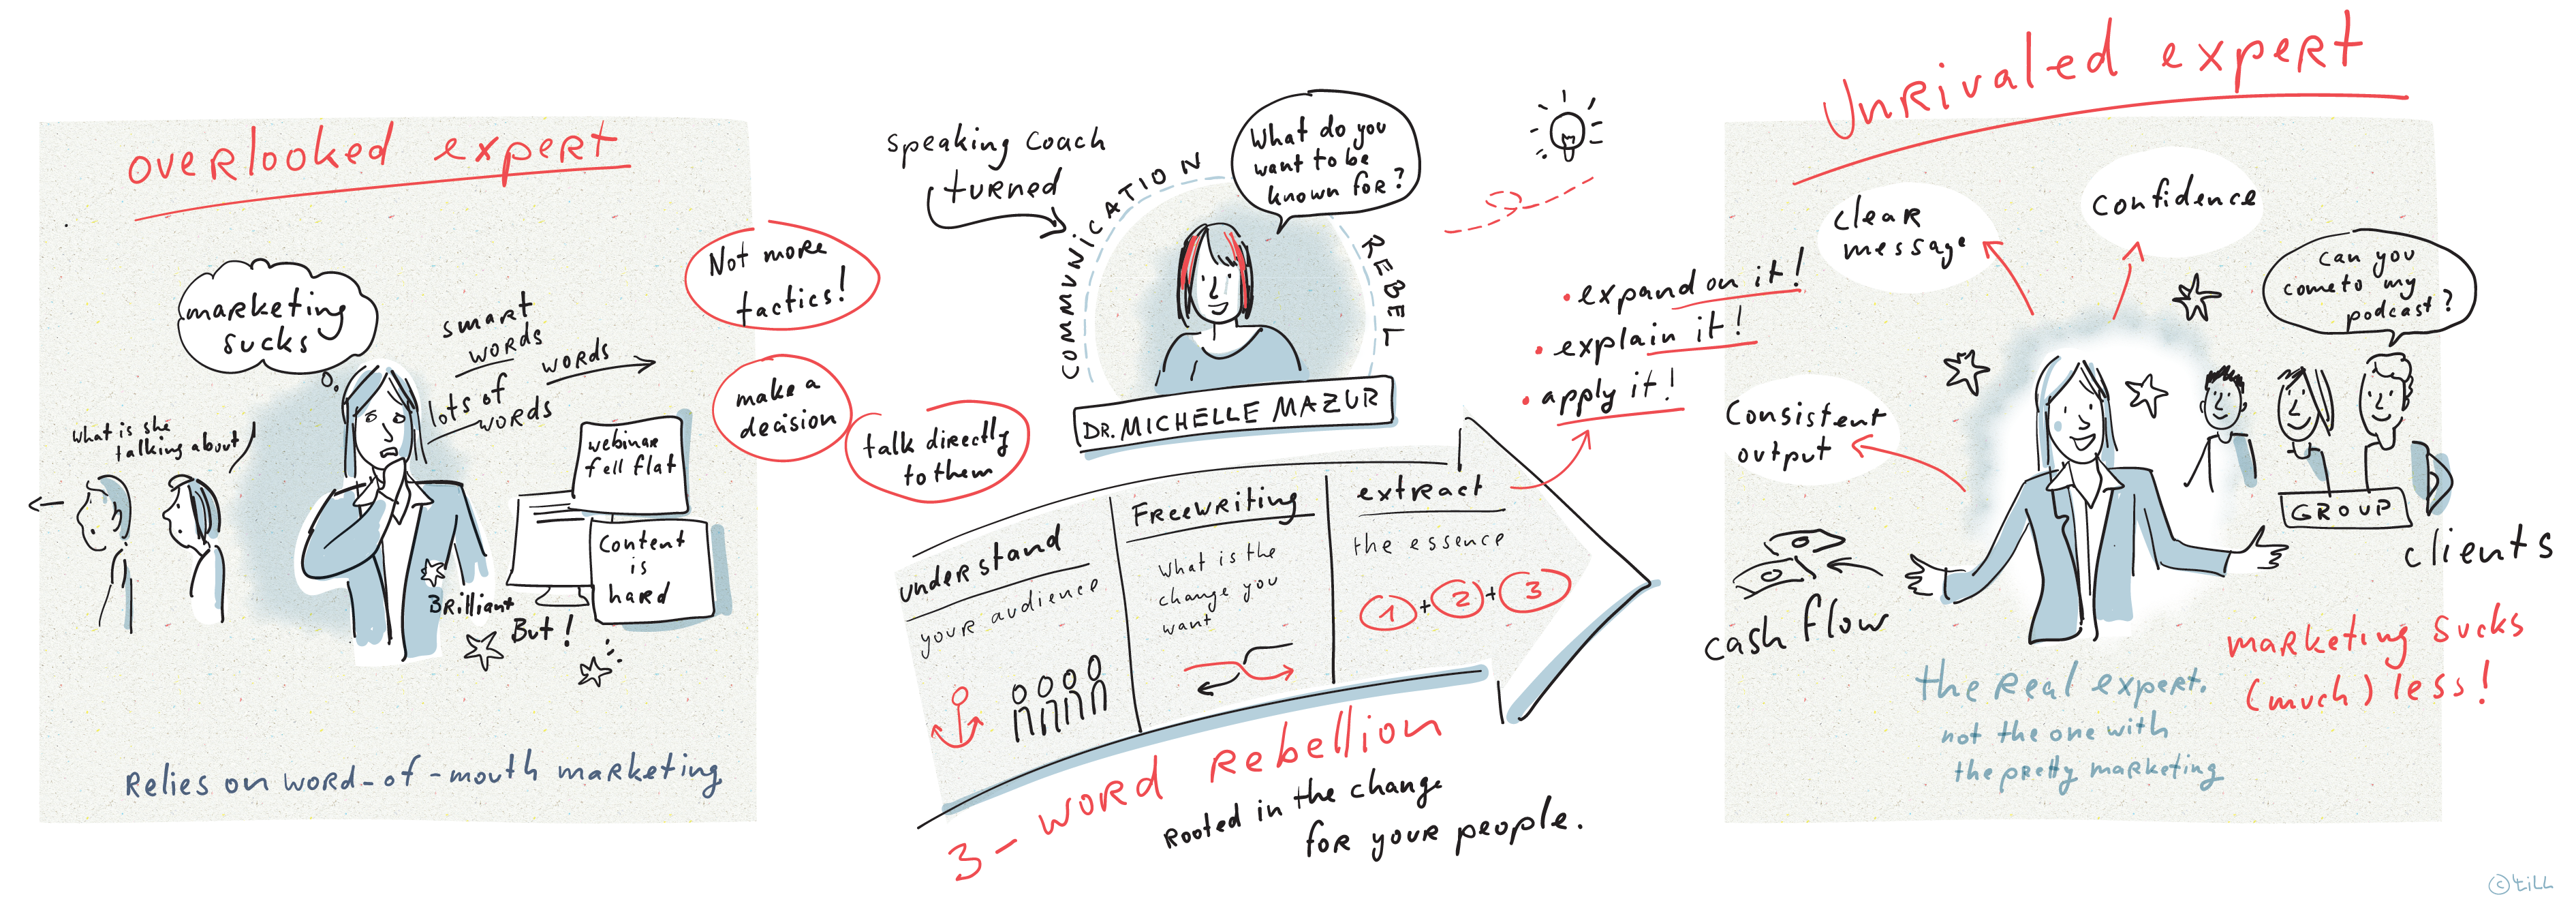 overlooked expert
marketing
sucks
smart
words
words
lots of
words
What is she
talking about
webinar
fell flat
Content
is
hard
Brilliant
But!
Relies on word-of-mouth marketing
Not more
tactics!
make a
decision
talk directly
to them
speaking coach
turned
COMMUNICATION
REBEL
What do you
want to be
known for?
DR. MICHELLE MAZUR
understand
your audience
Freewriting
What is the
change you
want
extract
the essence
1 + 2 + 3
• expand on it!
• explain it!
• apply it!
3-word Rebellion
Rooted in the change
for your people.
Unrivaled expert
clear
message
Confidence
Can you
come to my
podcast?
Consistent
output
GROUP
clients
cash flow
marketing sucks
(much) less!
the Real expert.
not the one with
the pretty marketing
© till